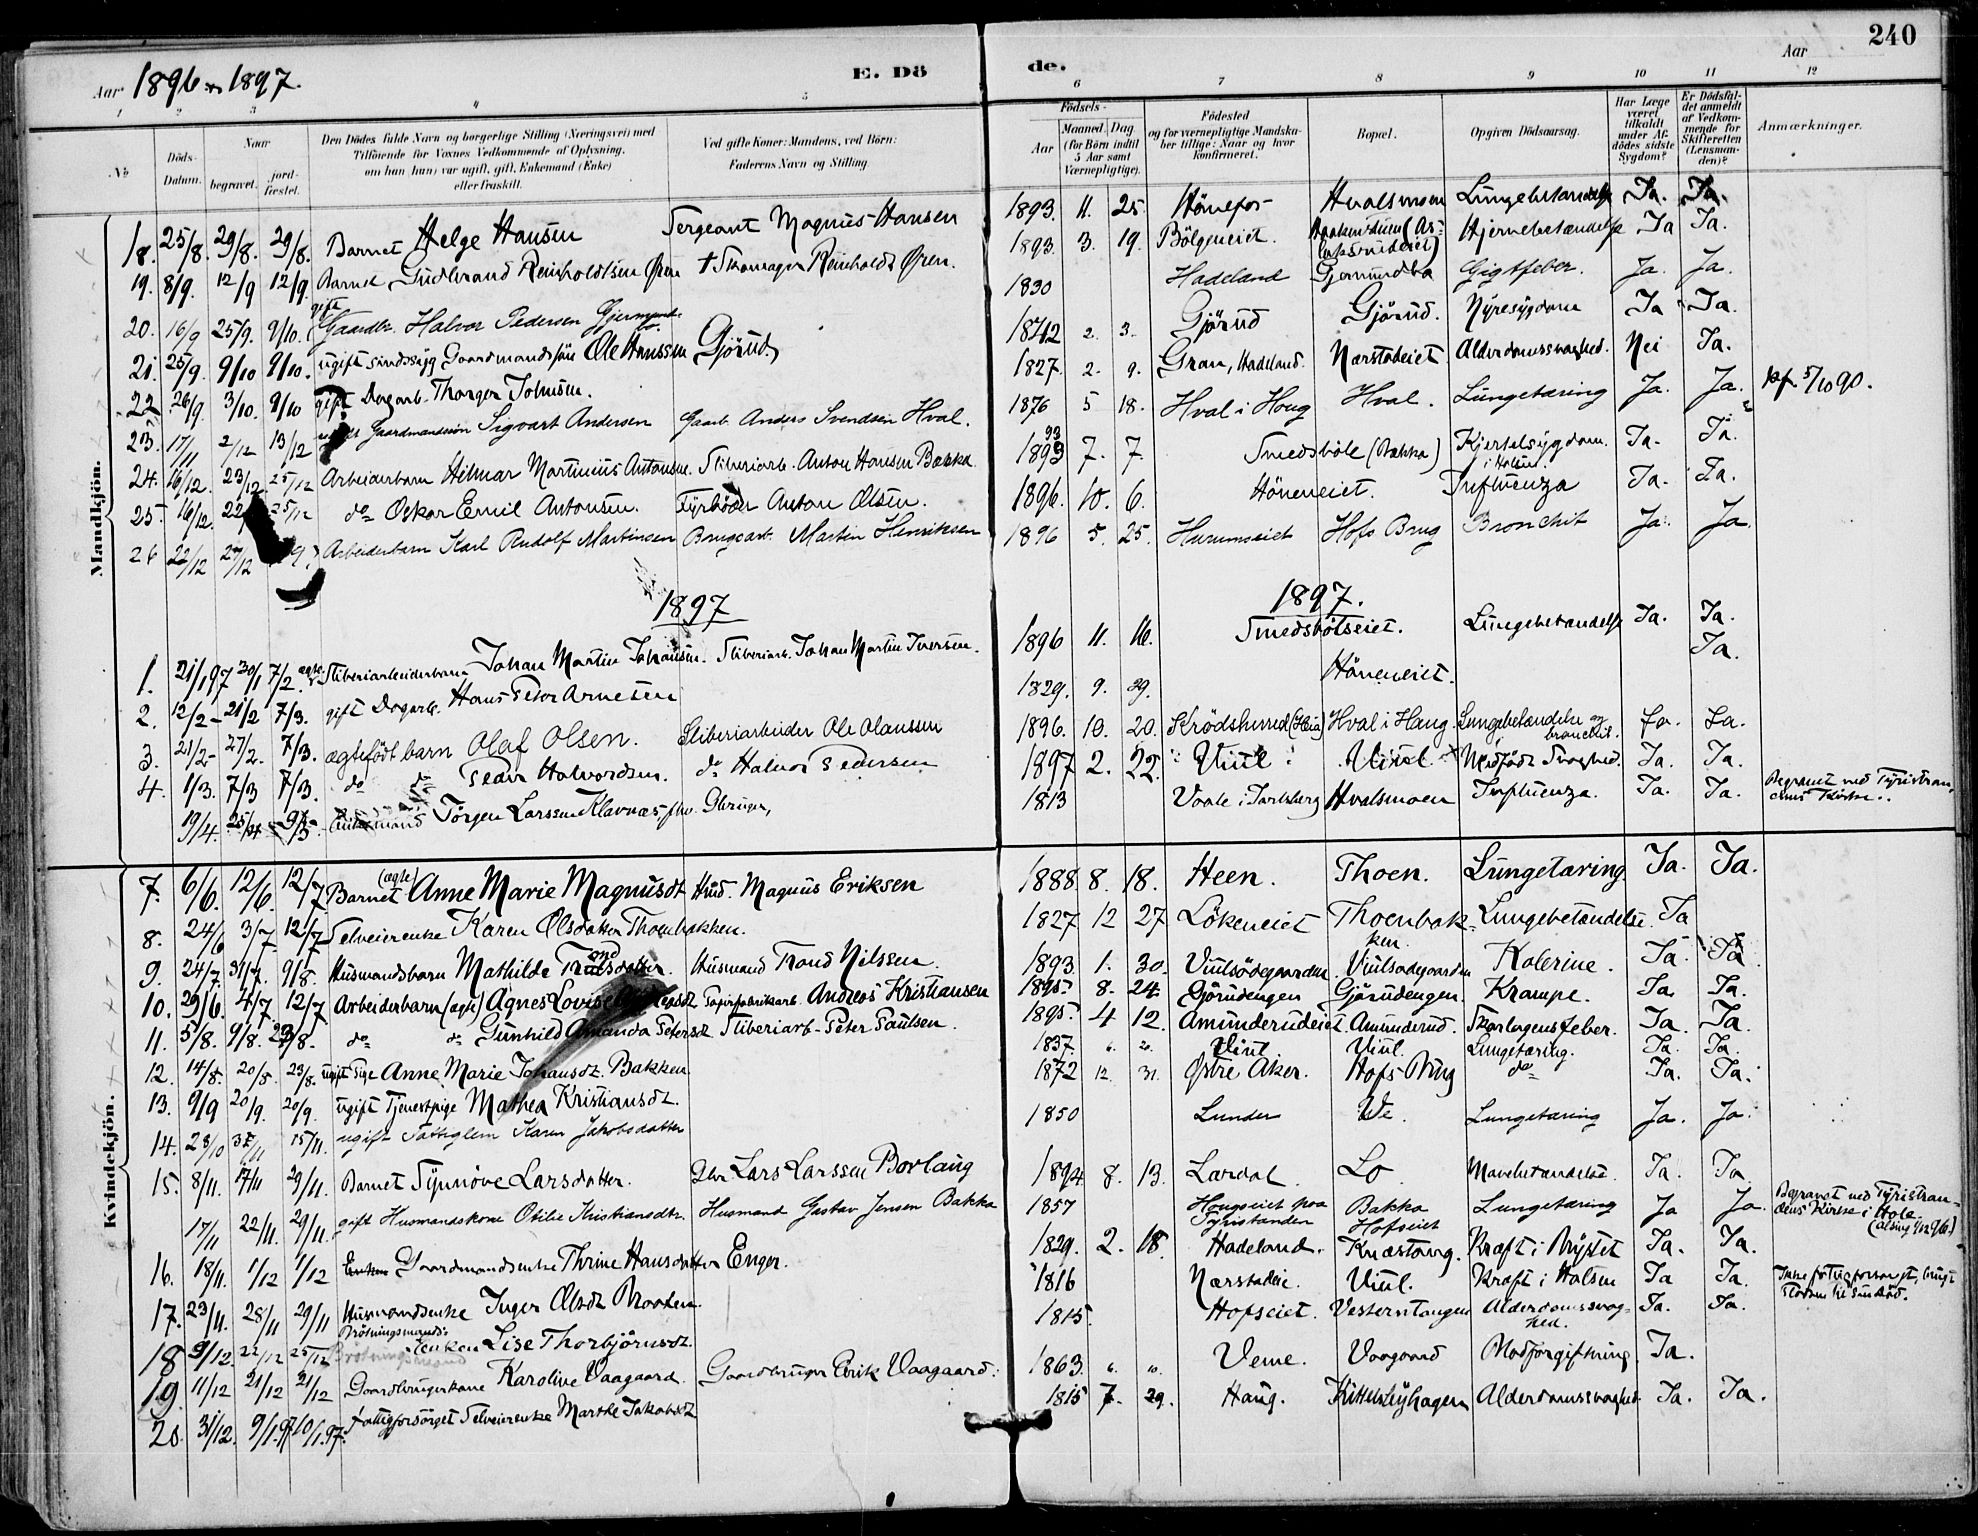 240
Aar 1896 og 1897.
E. Dö
de.
Aar
1 2 3 4 5 6 7 8 9 10 11 12
No
Döds-Datum.
Naar
begravet.
jord-fæstet.
Den Dödes fulde Navn og borgerlige Stilling (Næringsvei) med
Tilföiende for Voxnes Vedkommende af Oplysning,
om han (hun) var ugift, gift, Enkemand (Enke)
eller fraskilt.
Ved gifte Koner: Mandens, ved Börn:
Faderens Navn og Stilling.
Födsels-
Aar
Maaned. Dag
(for Börn indtil
5 Aar samt
Værnepligtige).
Födested
og for værnepligtige Mandska-
ber tillige: Naar og hvor
konfirmeret.
Bopæl.
Opgiven Dödsaarsag.
Har Læge
været
tilkaldt
under Af-
dödes sidste
Sygdom?
Er Dödsfal-
det anmeldt
af Vedkom-
mende for
Skifteretten
(Lensman-
den)?
Anmærkninger.
Mandkjön.
18. 25/8. 29/8. 29/8. Barnet Helge Hansen Sergeant Magnus Hansen 1893. 11. 25 Hönefos Hvalsmoen Lungebetændelse Ja. Ja.
19. 8/9. 12/9 12/9. Barnet Gudbrand Reinholdtsen Øren † Skomager Reinholdt Øren. 1893. 3. 19. Bölgeneiet. Hjernebetændelse Ja Ja.
20. 16/9 25/9. 9/10. gift Gaardbr. Halvor Pedersen 1830 Hadeland Gjermundbo Gigtfeber. Ja. Ja.
21. 25/9. 9/10 9/10. ugift sindssyg Gaardmandssön Ole Hanssen Gjörud. 1842 2. 3. Gjörud Gjörud. Nyresygdom Ja Ja.
22 26/9. 3/10. 9/10 gift Dagarb. Thorger Johnsen. 1827. 2. 9. Gran, Hadeland. Nærstadeiet Alderdomssvaghed. Nei Ja.
23. 17/11 2/12 13/12 Gaardmandssön Sigvart Andersen Gaarb. Anders Svendsen Hval. 1876 5 18. Hval i Houg Hval. Lungetæring Ja. Ja. kf. 5/10 90.
24. 16/12. 23/12 25/12 Arbeiderbarn Hilmar Martinius Antonsen. Sliberiarb. Anton Hansen Bakka 1893 7. 7. Smedsböle (Bakka) Kjertelsygdom i Halsen. Ja. Ja.
25. 16/12. 22 25/12 do Oskar Emil Antonsen. Fyrböder Anton Olsen. 1896. 10. 6. Höneneiet. Influenza Ja. Ja.
26 22/12 27/12 Arbeiderbarn Karl Rudolf Martinsen Brugsarb. Martin Henriksen 1896 5. 25. Harumseiet Hofs Brug Bronchit Ja. Ja
1897
1897.
1. 21/1 97 30/1 7/2. ægte Sliberiarbeiderbarn Johan Martin Johansen. Sliberiarb. Johan Martin Iversen. 1896 11. 16. Smedsbölseiet. Lungebetændelse Ja. Ja.
2. 12/2 21/2 7/3. gift Dagarb. Hans Peter Arnesen 1829. 9. 29. Höneneiet. Ja.
3. 21/2 27/2. 7/3. ægtefödt barn Olaf Olsen. Sliberiarbeider Ole Olaussen 1896. 10. 20. Krödsherred (Hæia) Hval i Haug Lungebetændelse og bronchit. Ja. Ja.
4. 1/3. 7/3 7/3. do do Peder Halvordsen. do Halvor Pedersen 1897 2. 22. Viul Viul Medfödt Svaghed. Ja. Ja.
19/4. 25/4 9/5 Enkemand Jörgen Larssen Klævnæs, fhv. Gbruger, 1813 Vaale i Jarlsberg Hvalsmoen Influenza. Ja. Ja. Begravet ved Tyristran-
dens Kirke.
Kvindekjön.
7. 6/6. 12/6. 12/7 Barnet (ægte) Anne Marie Magnusdt Husd. Magnus Eriksen 1888 8. 18. Heen. Thoen. Lungetæring Ja. Ja.
8. 24/6 3/7. 12/7 Selveierenke Karen Olsdatter Thoenbakken. 1827 12 27 Lökeneiet Thoenbak-
ken Lungebetændelse. Ja
9. 24/7. 31/7. 9/8. Husmandsbarn Mathilde Husmand Trond Nilssen 1893. 1. 30. Viulsödegaarden Viulsödegaarden Kolerine. Ja. Ja
10. 29/6. 4/7. 12/7 Arbeiderbarn (ægte) Agnes Lovise Papirfabrikarb. Andreas Kristiansen 1895. 8. 24. Gjörudengen Gjörudengen. Krampe. Ja. Ja.
11. 5/8. 9/8. 23/8. do do Gunhild Amanda Petersdt Sliberiarb. Peter Paulsen. 1895. 4 12. Amunderudeiet. Amunderud. Skarlagensfeber. Ja. Ja.
12. 14/8. 20/8. 23/8. ugift Pige Anne Marie Johansdt. Bakken 1837. 6. 20. Viul Viul. Lungetæring. Ja. Ja.
13. 9/9 20/9. 20/9. ugift Tjenestpige Mathea Kristiansdt. 1872 12. 31. Østre Aker. Hofs Brug do Ja. Ja.
14. 28/10 15/11. ugift Fattiglem Karen Jakobsdatter 1850 Lunder We Lungetæring Ja. Ja.
15. 8/11. 17/11 29/11. Barnet Synnöve Larsdatter. Gbr. Lars Larssen Borlaug 1894 8. 13. Lærdal Lo Mavebetændelse. Ja. Ja
17/11 22/11. 29/11. gift Husmandskone Otilie Kristiansdtr. Husmand Gustav Jensen Bakka 1857 Hougseiet paa
Tyristranden Bakka
Hofseiet Lungetæring Ja Ja. Begravet ved Tyristran-
dens Kirke i Hole
16. 18/11. 1/12 1/12 Gaardmandsenke Thrine Hansdatter Enger. 1829. 2. 18. Hadeland. Knæstang. Kræft i Brystet Ja. Ja.
17. 23/11. 28/11 29/11 Husmandsenke Inger Olsdt Moxten. 1816 Nærstadeie. Viul. Kræft i Halsen Ja Ja.
18 9/12. 22/12 25/12 Brötningsmands-
enken Lise Thorbjörnsdt. 1815. Hofseiet. Vesterntangen Alderdomssvag-
hed. Ja. Ja.
19. 11/12 21/12 21/12 Gaardbrugerkone Karoline Vaagaard. Gaardbruger Eirik Vaagaard. 1863. 6. 10. Veme. Vaagaard Madforgiftning. Ja.
20. 31/12. 9/1.97 10/1.97. Fattigforsörget Selveierenke Marthe Jakobsdt 1815 7. 29. Haug. Alderdomssvaghed Ja. Ja.